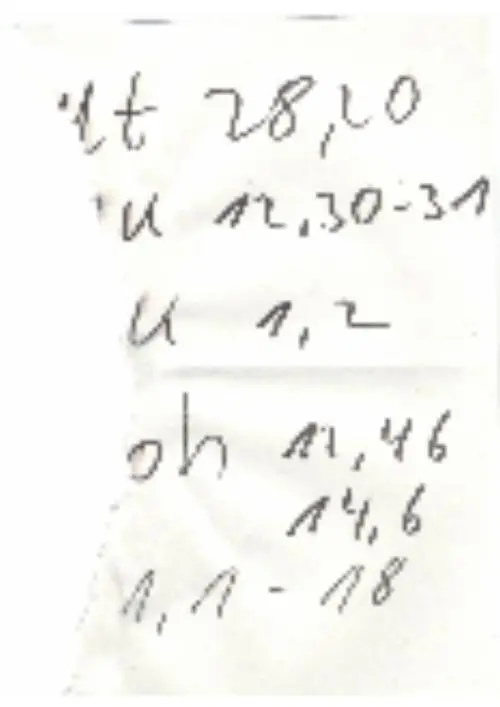 t 28,20
k 12,30-31
k 1,2
oh 12,46
14,6
1,1-18